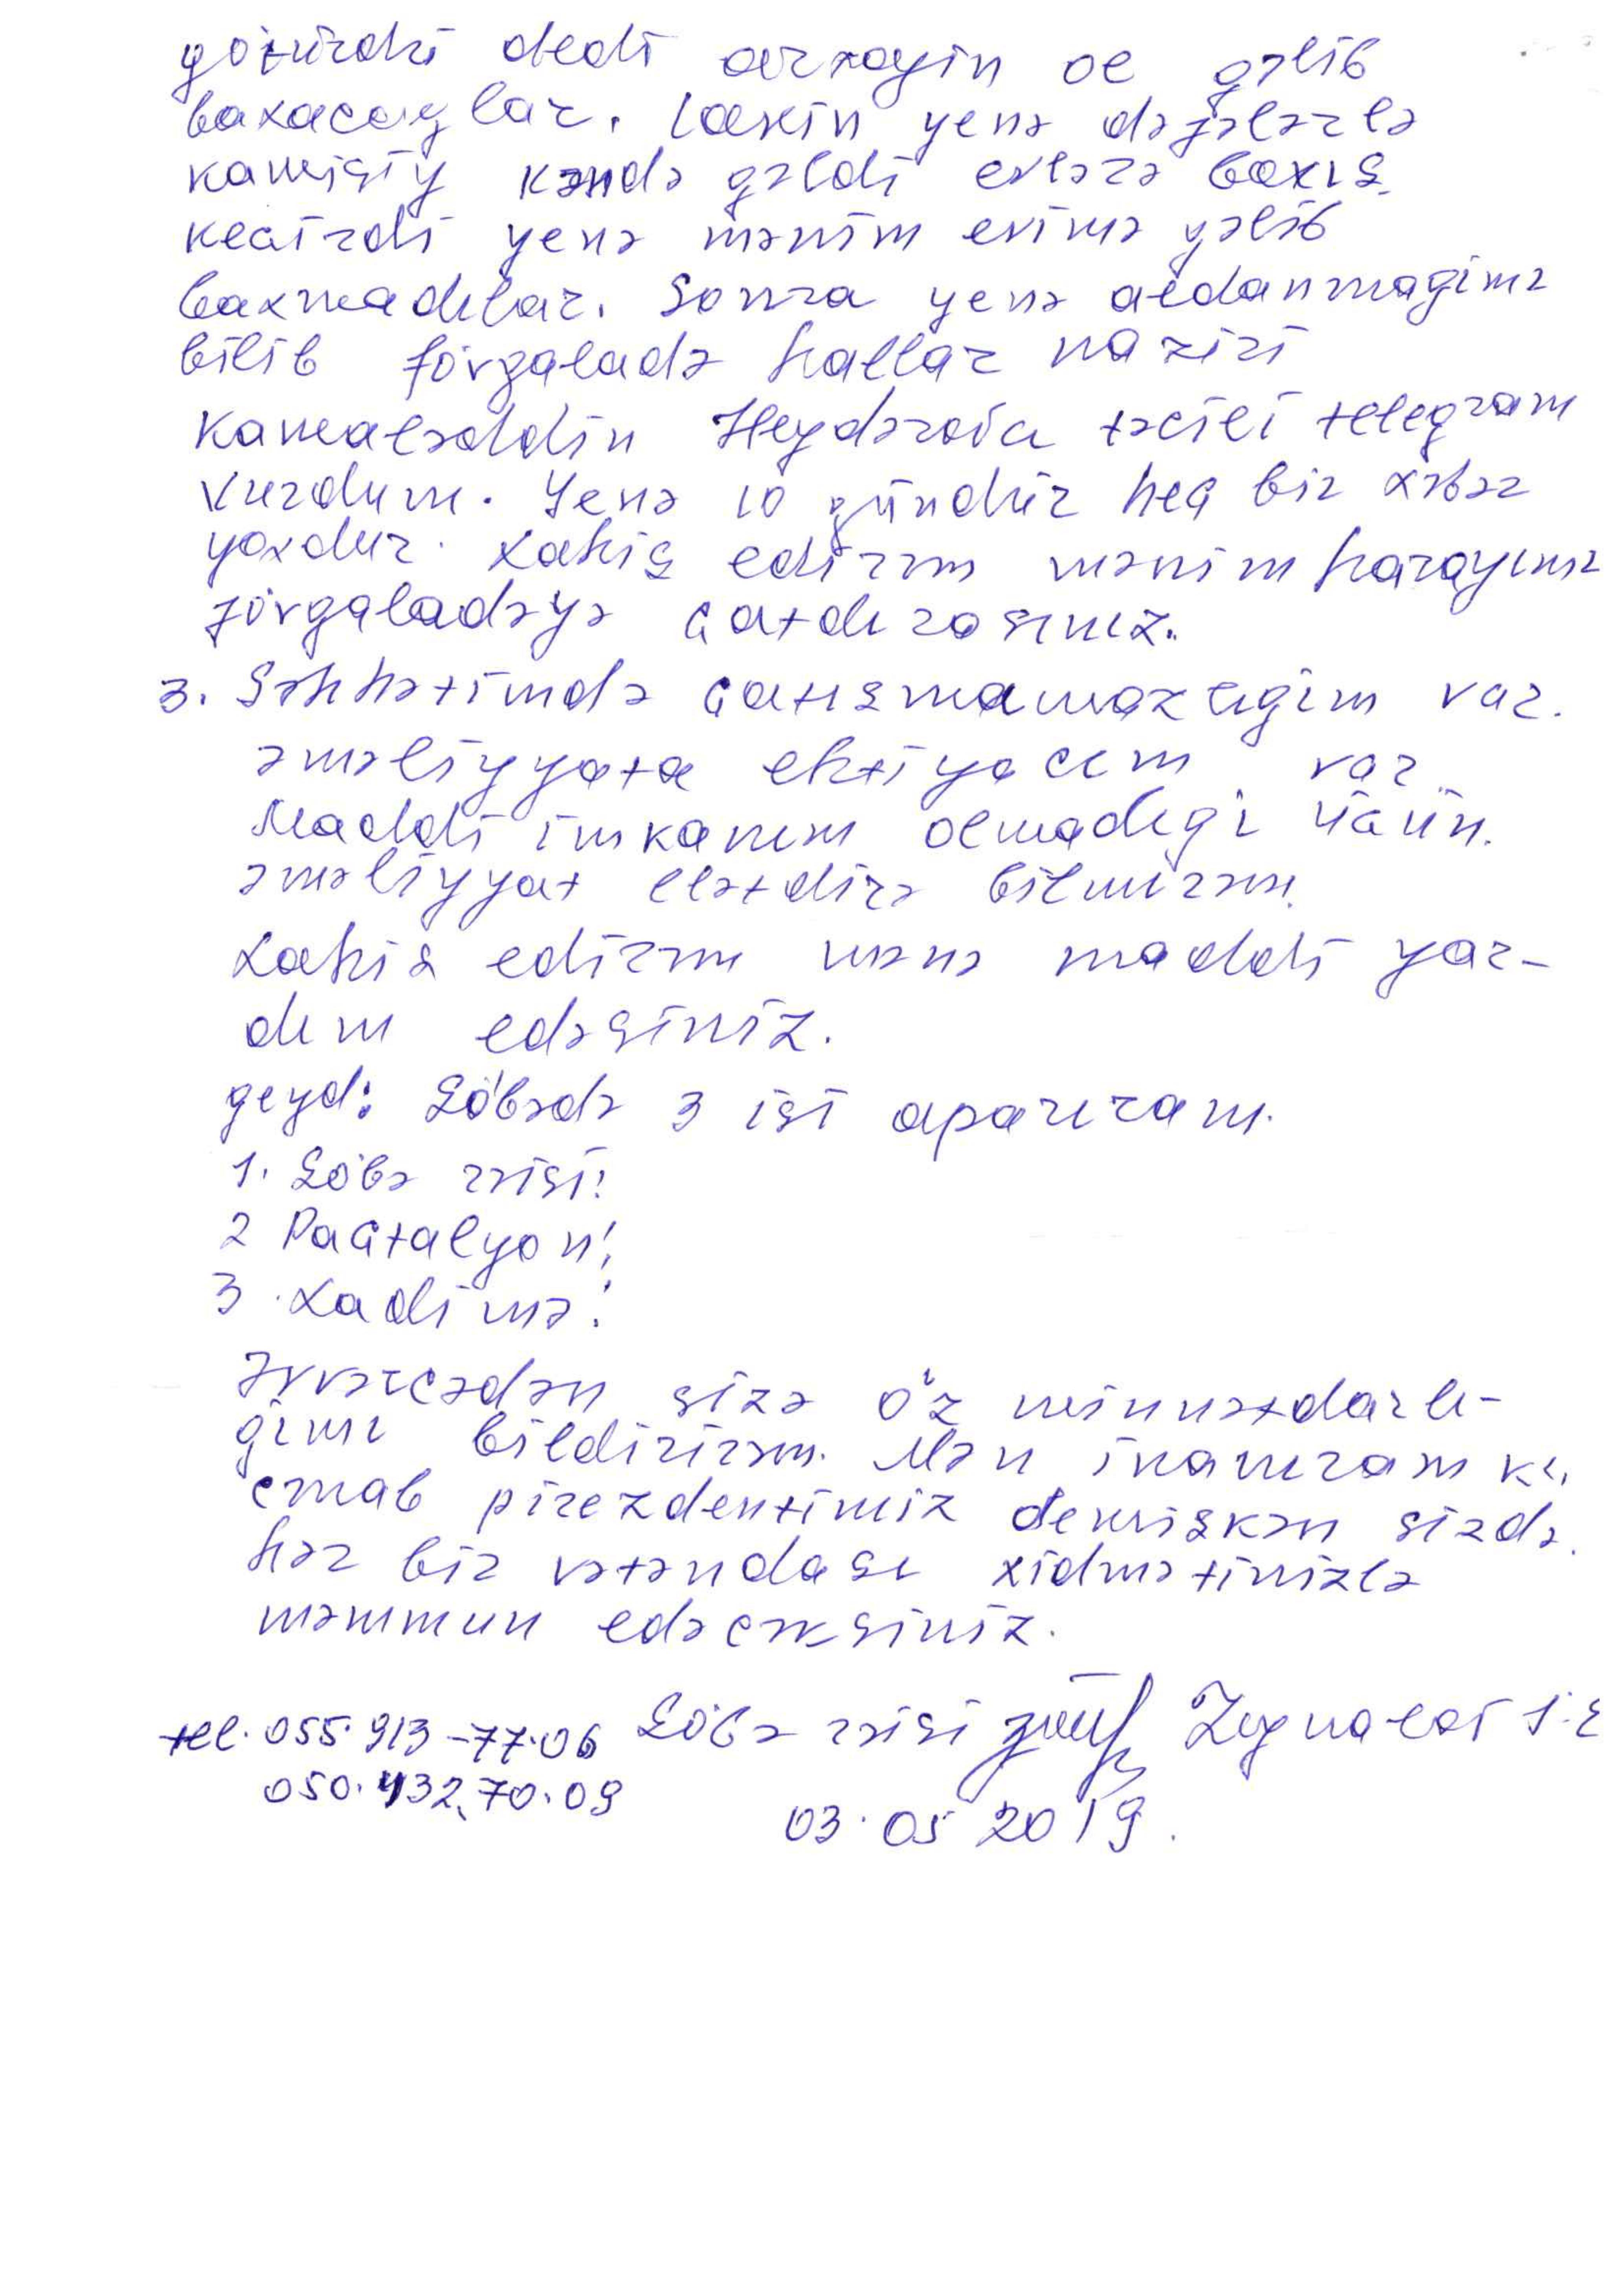 götürdü dedi arxayin ol gəlib
baxacaglar. Lakin yenə dəfələrlə
kamisiy kəndə gəldi evlərə baxış
keçirdi yenə mənim evimə gəlib
baxmadılar. Sonra yenə aldanmagimı
bilib fövgaladə hallar naziri
Kamaləddin Heydərova təcili telegram
vurdum. Yenə 10 gündür heç bir xəbər
yoxdur. Xahiş edirəm mənim harayımı
fövgaladəyə çatdırasınız.
3. Səhhətimdə çatışmamazlıgim var.
əməliyyata ehtiyacım var
Maddi imkanım olmadıgı üçün.
əməliyyat elətdirə bilmirəm.
Xahiş edirəm mənə maddi yar-
dım edəsiniz.
geyd: Şöbədə 3 işi aparıram.
1. Şöbə rəisi!
2 Paçtalyon!
3. Xadimə!
Əvvəlcədən sizə öz minnətdarlı-
gımı bildirirəm. Mən inanıram ki,
cənab pirezdentimiz demişkən sizdə.
hər bir vətəndaşı xidmətinizlə
məmmun edəcəksiniz.
tel. 055.913-77.06 Şöbə rəisi Zeynalov
050.432.70.09
03.05 2019.